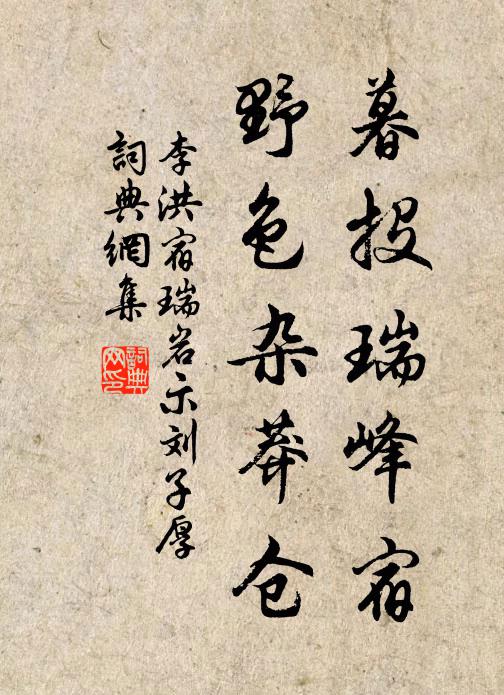 暮投瑞峰宿
野色杂莽仓
李洪宿瑞岩示刘子厚
詞典網集
詞典
网印